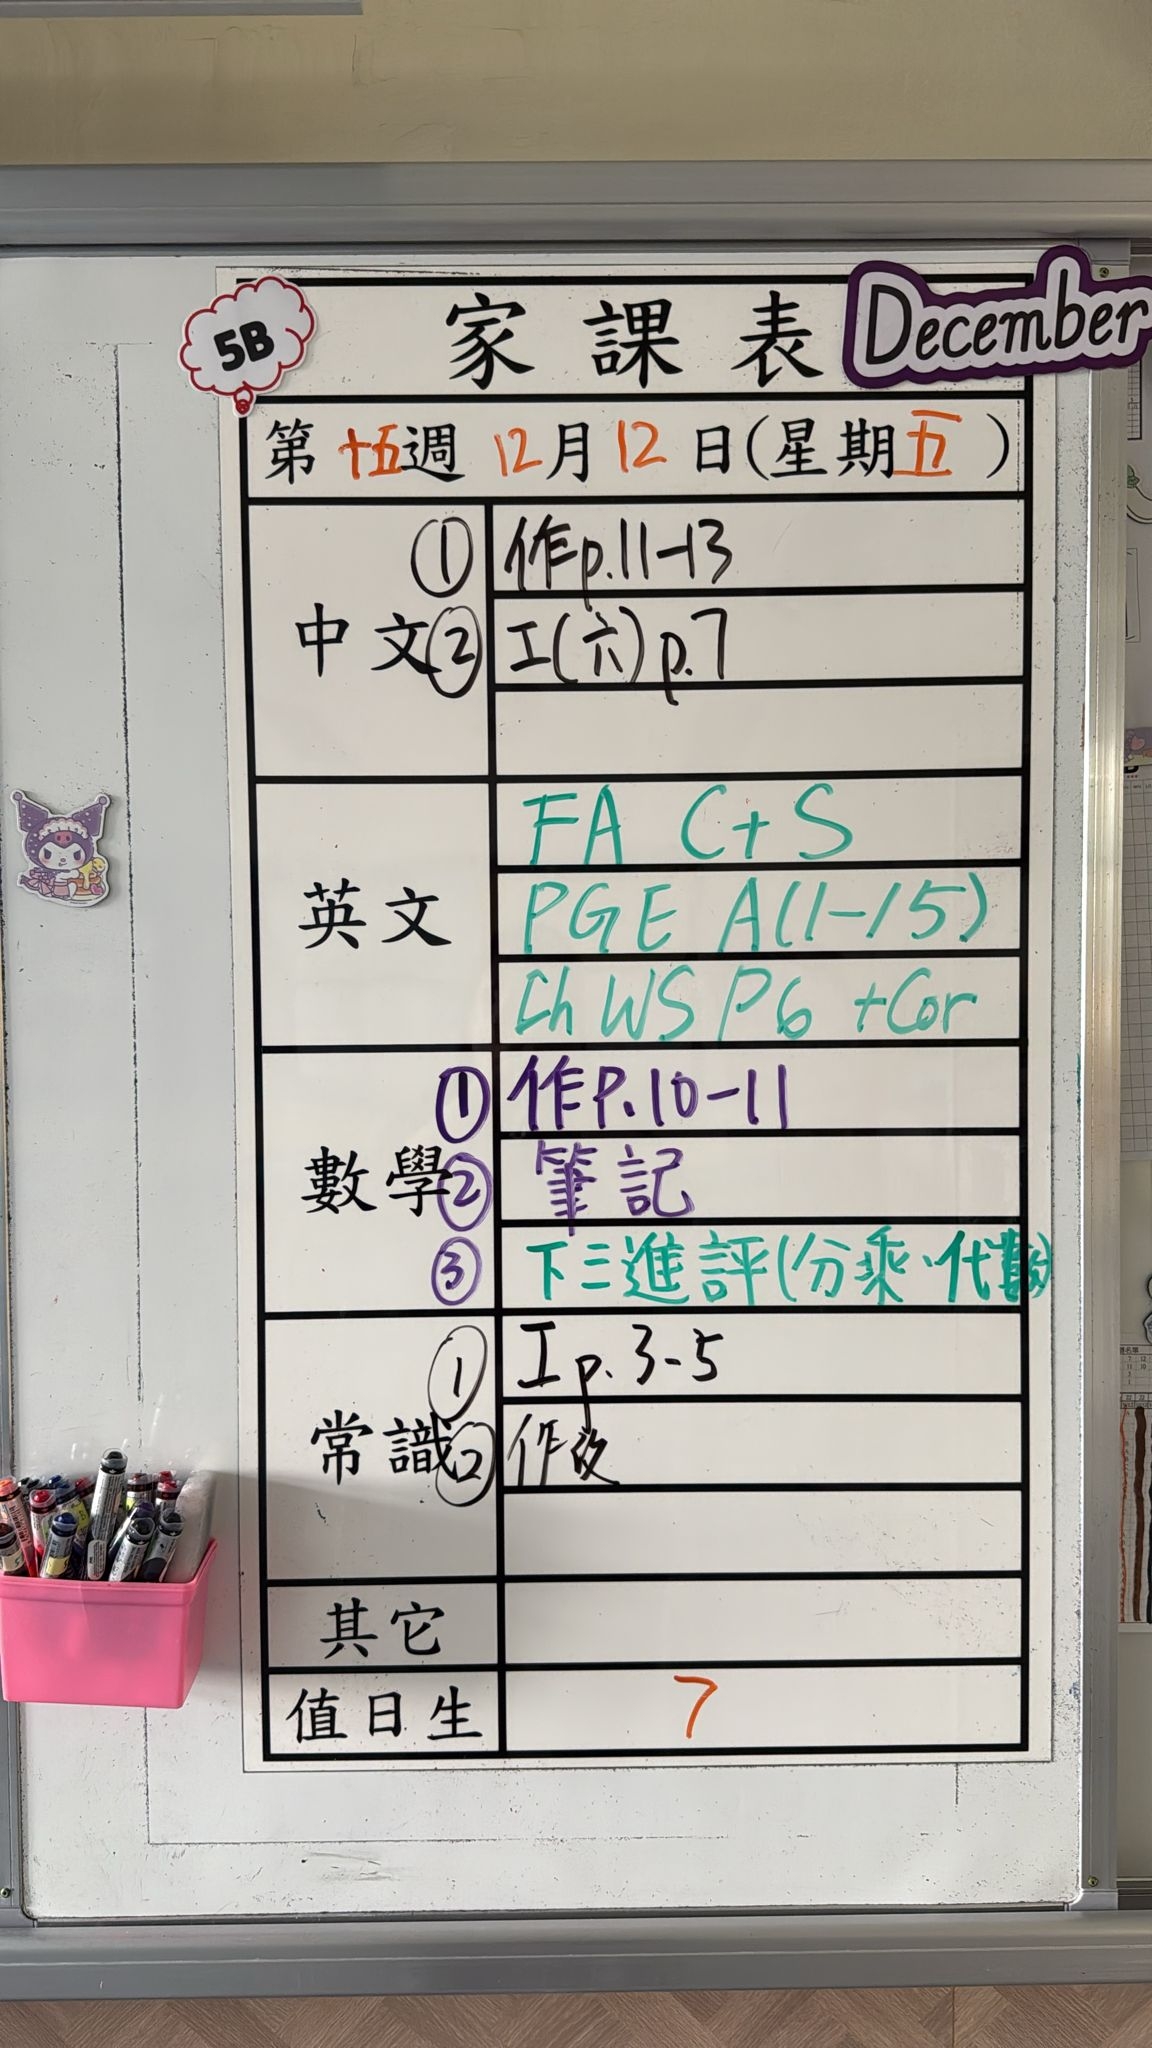 5B
家課表
December
第十五週 12月12日(星期五)
中文
① 作p.11-13
② 工(六)p.7
英文
FA C+S
PGE A(1-15)
Ch WS P6 +Cor
數學
① 作P.10-11
② 筆記
③ 下三進評(分乘、代數)
常識
① 工p.3-5
② 作改
其它
值日生
7